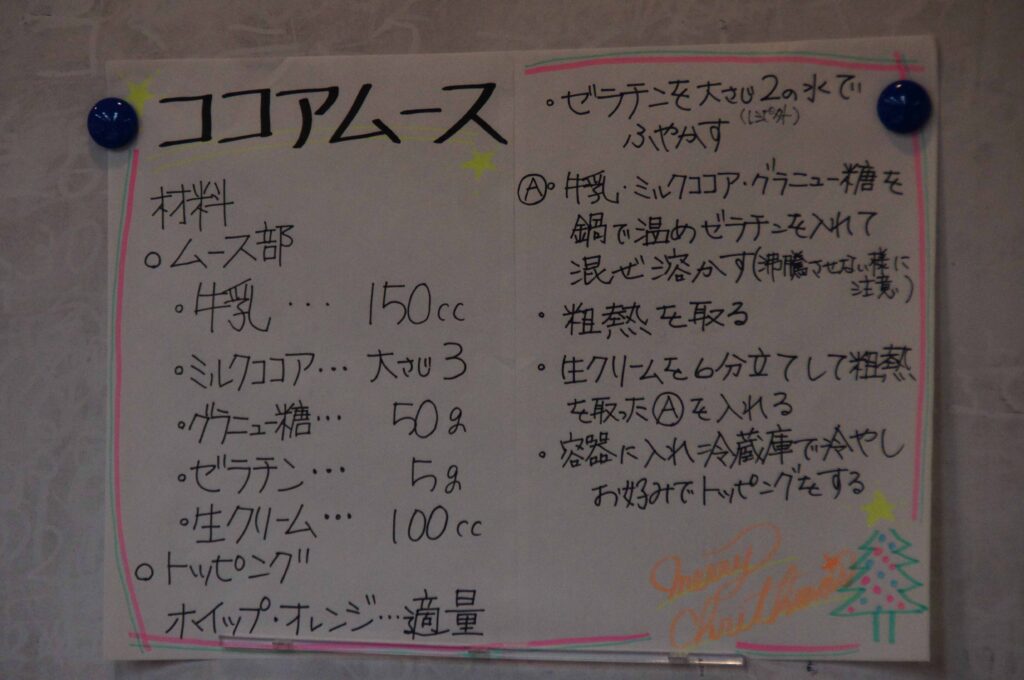 ココアムース
材料
○ムース部
・牛乳 ・・・ 150cc
・ミルクココア・・・ 大さじ3
・グラニュー糖・・・ 50g
・ゼラチン・・・ 5g
・生クリーム・・・ 100cc
○トッピング
ホイップ・オレンジ・・・適量
・ゼラチンを大さじ2の水で
(レシピ外)
ふやかす
Ⓐ・牛乳・ミルクココア・グラニュー糖を
鍋で温めゼラチンを入れて
混ぜ溶かす(沸騰させない様に
注意)
・粗熱を取る
・生クリームを6分立てして粗熱
を取ったⒶを入れる
・容器に入れ冷蔵庫で冷やし
お好みでトッピングをする
Merry
Christmas